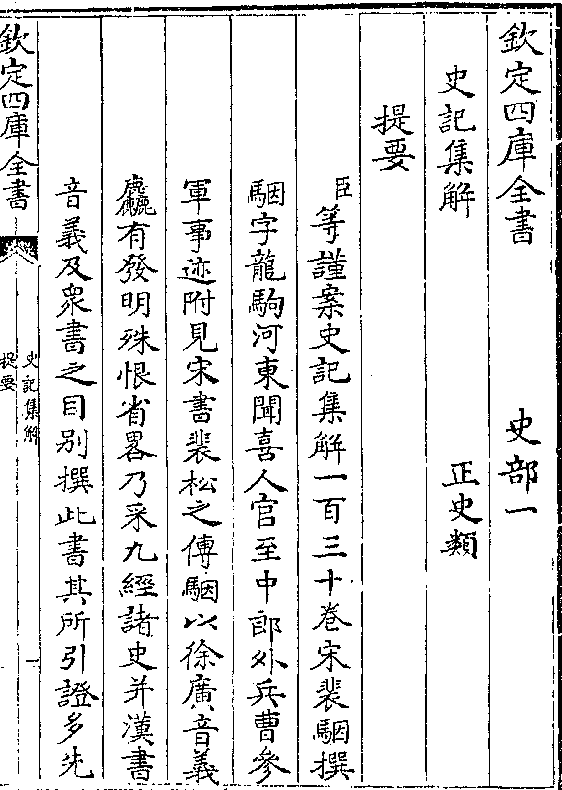 欽定四庫全書 史部一
史記集解 正史類
提要
臣等謹案史記集解一百三十卷宋裴駰撰
駰字龍駒河東聞喜人官至中郎外兵曹參
軍事迹附見宋書裴松之傳駰以徐廣音義
麤有發明殊恨省畧乃采九經諸史并漢書
音義及衆書之目别撰此書其所引證多先
欽定四庫全書
史記集解
提要
一